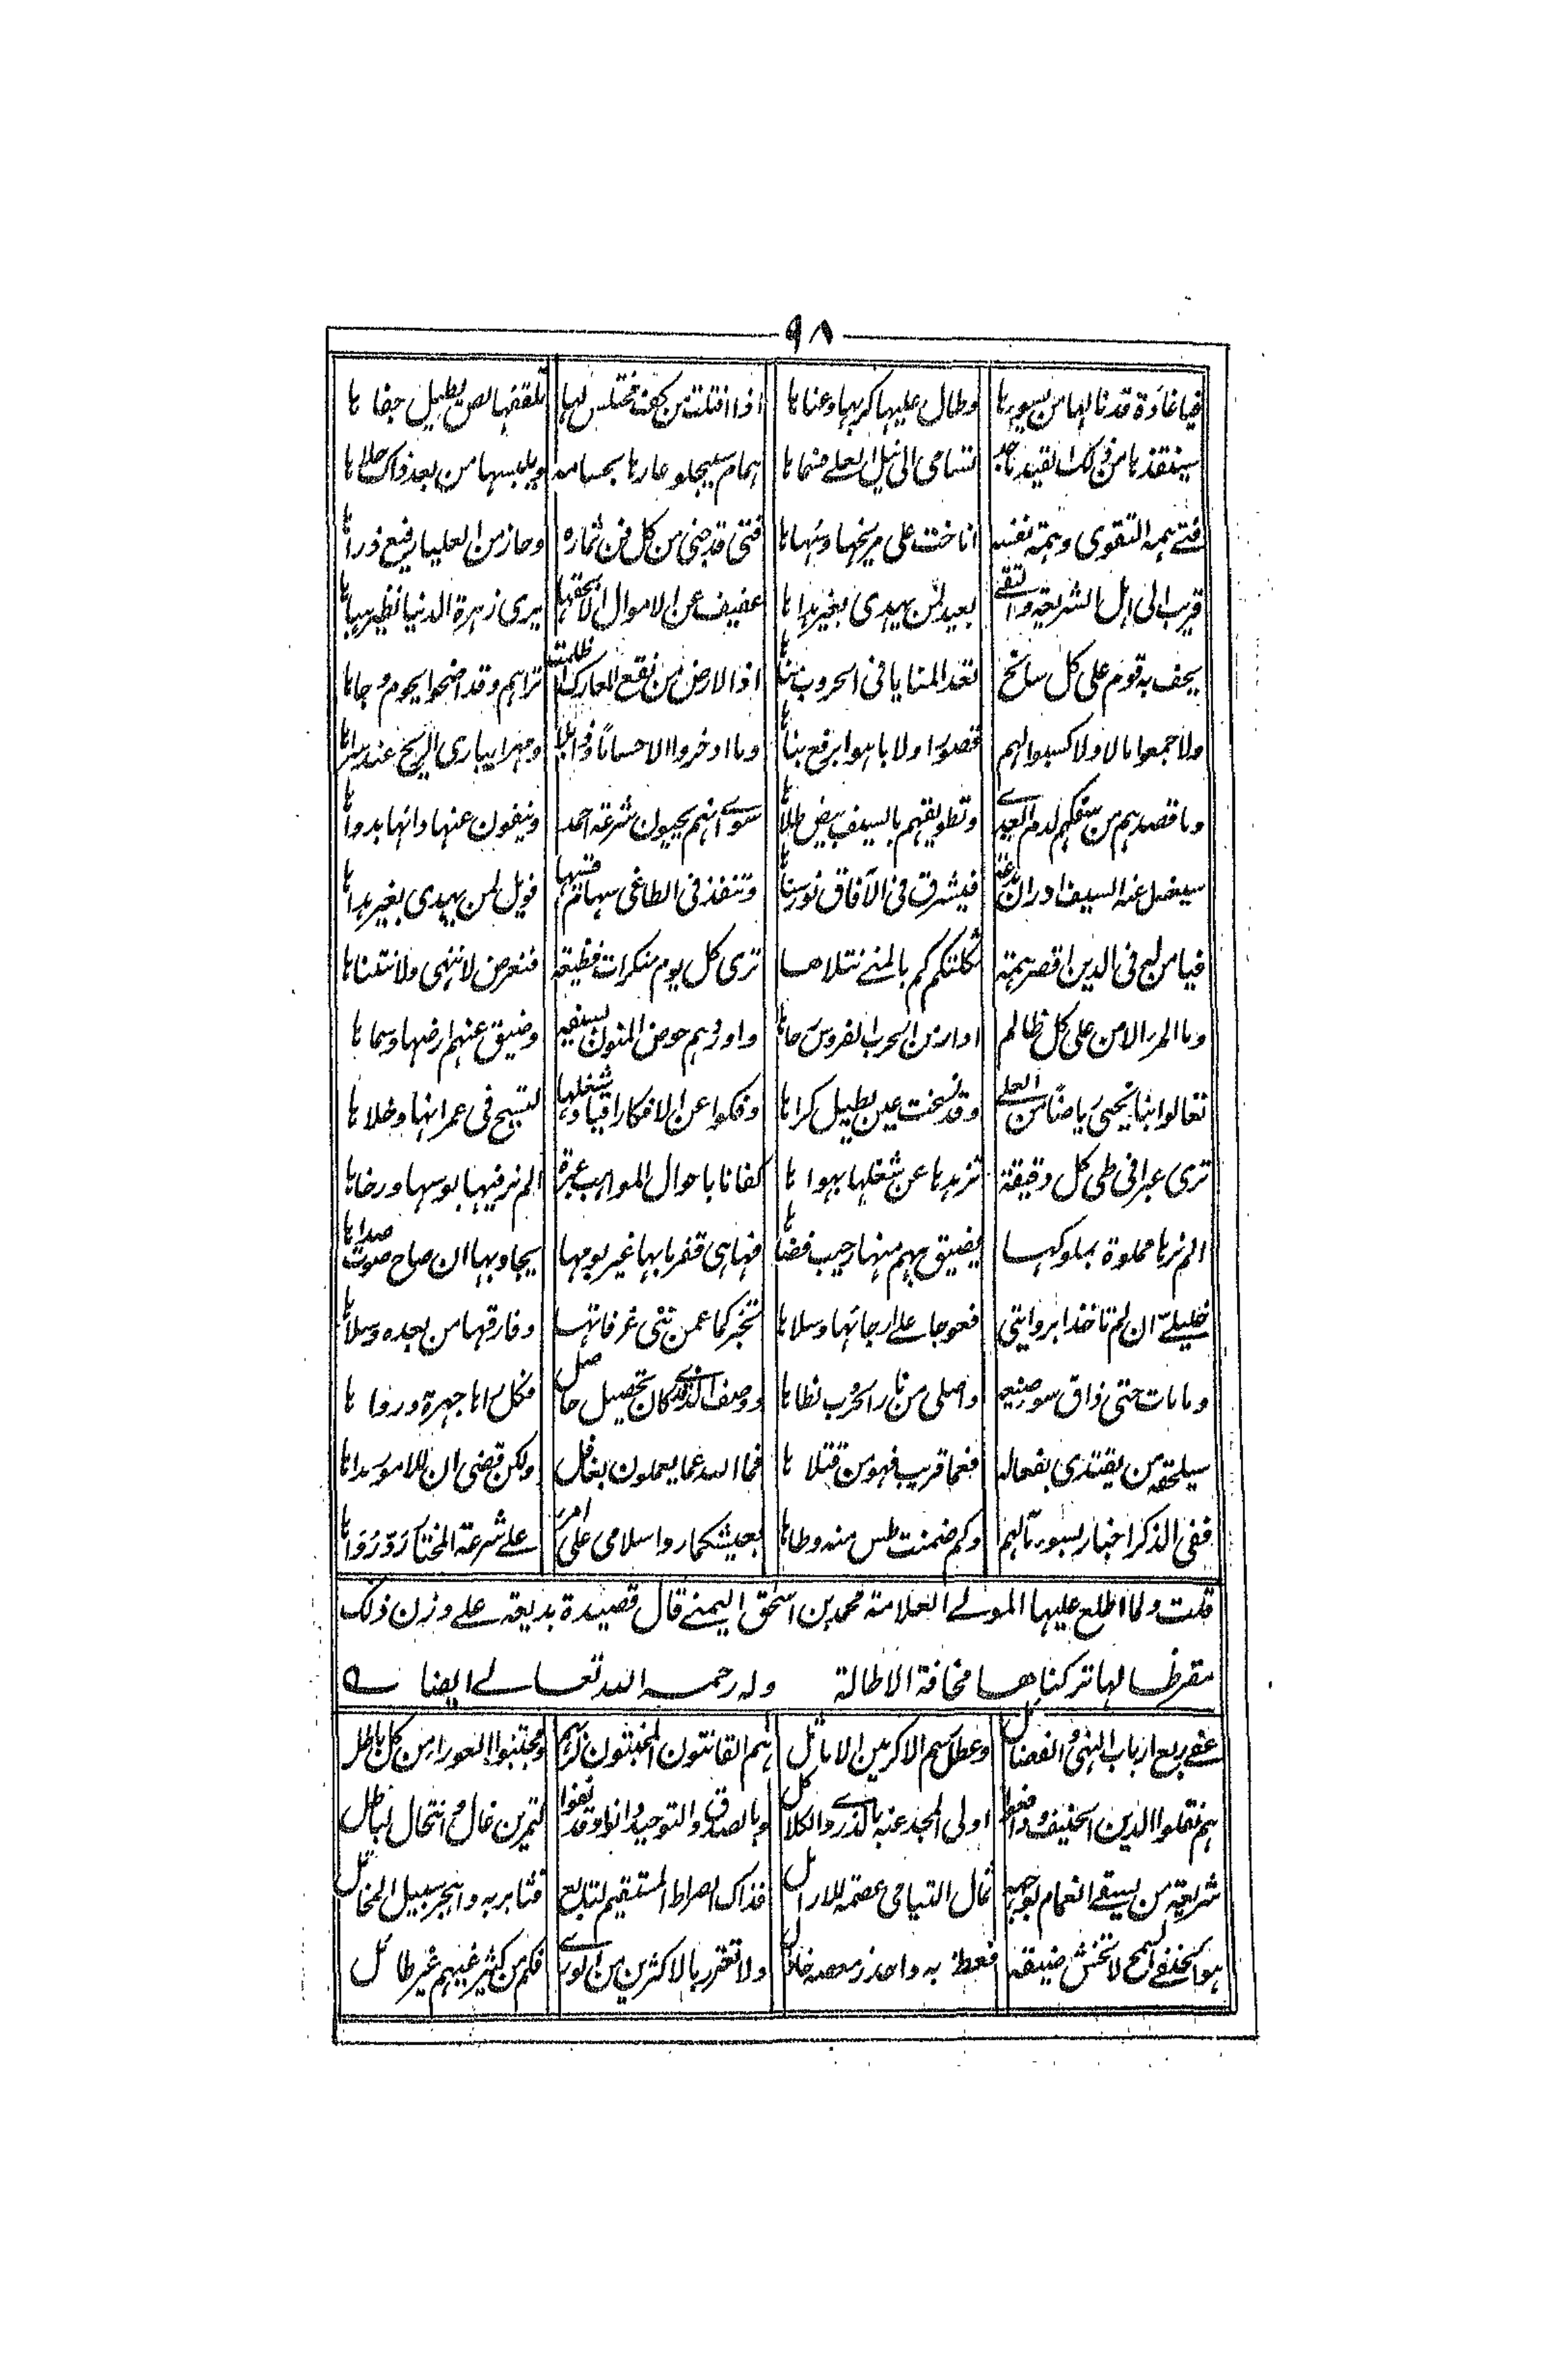 ٩٨
فيا غادة قد نالها من يسورها وطال عليها كربها وعناها اذا افتلتت من كف مختلس لها تلقفها لص يطيل جفاها
سينقذها من ذلك القيد ماجد تسامى الى نيل العلے منماها همام سيجلو عارها بحسامه ويلبسها من بعد ذاك حلاها
فتے همه التقوى وهمة نفسه اناخت على مريخها وسهاها فتى قد جنى من كل فن ثماره وحاز من العليا رفيع ذراها
قريب الى اهل الشريعة والتقے بعيد لمن يهدى بغير هداها عفيف عن الاموال الا بحقها يرى زهرة الدنيا نظير هباها
يحف به قوم على كل سابح تعد المنايا فى الحروب مناها اذا الارض من نقع المعارك اظلمت تراهم وقد اضحوا نجوم دجاها
ولا جمعوا مالا ولا كسبوا لهم قصورا ولا باهوا برفع بناها وما ادخروا الا حساما وذابلا ومهرا يبارى الريح عند سراها
وما قصدهم من سفكهم لدم العدے وتطويقهم بالسيف بيض طلاها سوے انهم يحيون شرعة احمد وينفون عنها داءها بدواها
سيغسل عنه السيف ادران بدعة فيشرق فى الآفاق نور سناها وتنفذ فى الطاغى سهام فويل لمن يهدى بغير هداها
فيا من لهم فى الدين اقصر همة ثكلتكم كم بالمنے نتلاها ترى كل يوم منكرات فظيعة فنعرض لا ننهى ولا نتناها
وما المرء الا من على كل ظالم ادار من الحرب الضروس رحاها واوردهم حوض المنون بسيفه وضيق عنهم ارضها وسماها
تعالوا بنا نحيى رياضا من العلے وقد سخنت عين يطيل كراها وفكوا عن الافكار اقياد شغلها لتسيح فى عمرانها وخلاها
ترى عبرا فى طى كل دقيقة تزهدها عن شغلها بهواها كفانا باحوال المواهب عبرة الم نر فيها بوسها ورخاها
الم نرها مملوة بملوكها يضيق بهم منها رحيب فضاها فها هى قفر ما بها غير بومها يجاوبها ان صاح صوت صداها
خليلے ان لم تاخذا بروايتى فعوجا علے ارجائها وسلاها تخبركما عمن بنى غرفاتها وفارقها من بعده وسلاها
وما مات حتى ذاق سوء صنيعه واصلى من نار الحروب لظاها ووصف الذے قد كان تحصيل حاصل فكل راها جهرة ورواها
سيلحقه من يقتدى بفعاله فعما قريب فهو من قتلاها فما الله عما يعملون بغافل ولكن قضى ان للامور مداها
ففى الذكر اخبار بسوء مآلهم وكم ضمنت طس منه وطاها بعيشكما ردا سلامى على امرئ علے شرعة المختار دوروها
قلت ولما اطلع عليها المولے العلامة محمد بن اسحق اليمنے قال قصيدة بديعة علے وزن ذلك
مقرظا لها تركناها مخافة الاطالة وله رحمه الله تعالے ايضا ے
عفے ربع ارباب النهى والفضائل وعطل رسم الاكرمين الاماثل هم القانتون المخبتون لربهم ومجتنبوا العوراء من كل باطل
هم نقلوا الدين الحنيف ودافعوا اولى المجد عنه بالذرے والكلاكل وبالصدق والتوحيد دانوا وقد نفوا لتحريف غال وانتحال لباطل
شريعة من يسقے الغمام بوجهه ثمال اليتامى عصمة للارامل فذاك الصراط المستقيم لتابع فثابر به واهجر سبيل المخاتل
هو الحنفے السمح لا تخش ضيقه فعظ به واحذر معه خاذل ولا تغترر بالاكثرين من الورے فكم من كثير غيهم غير طائل